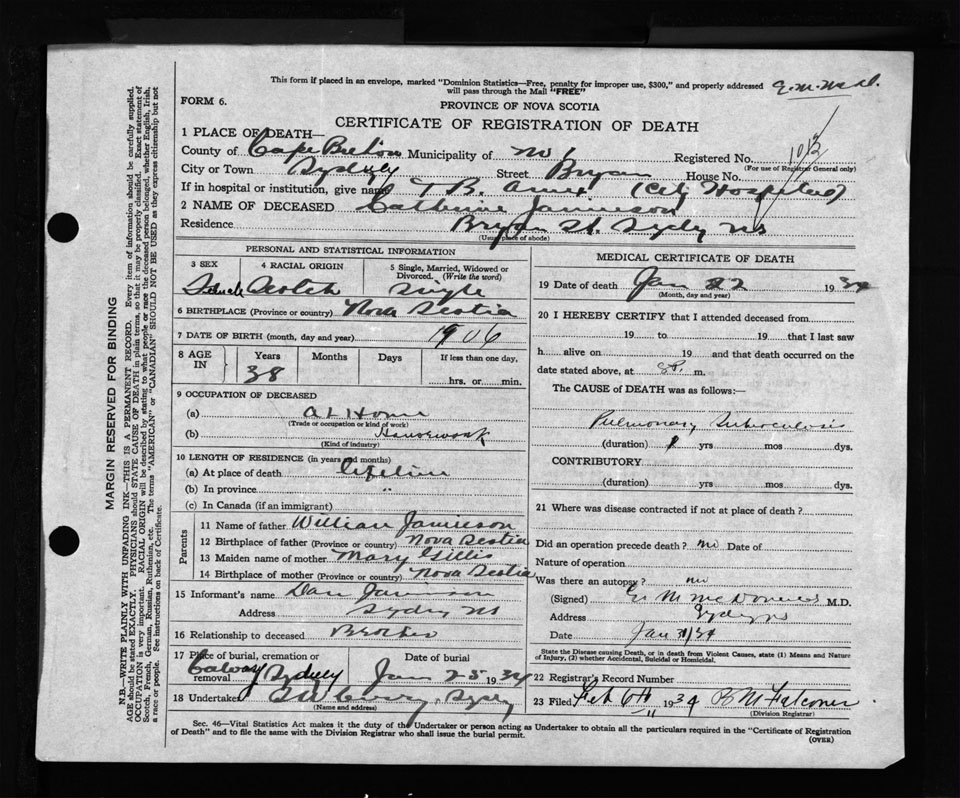 This form if placed in an envelope, marked "Dominion Statistics—Free, penalty for improper use, $300," and properly addressed
will pass through the Mail "FREE"
FORM 6.
PROVINCE OF NOVA SCOTIA
CERTIFICATE OF REGISTRATION OF DEATH
1 PLACE OF DEATH—
County of Cape Breton Municipality of No 1 Registered No. 1013
(For use of Registrar General only)
City or Town Sydney Street Bryan House No.
If in hospital or institution, give name T B. Annex (City Hospital)
2 NAME OF DECEASED Catherine Jamieson
Residence Bryan St. Sydney NS
(Usual place of abode)
PERSONAL AND STATISTICAL INFORMATION
3 SEX
4 RACIAL ORIGIN
5 Single, Married, Widowed or Divorced. (Write the word)
Female Scotch single
6 BIRTHPLACE (Province or country) Nova Scotia
7 DATE OF BIRTH (month, day and year) 1906
8 AGE IN
Years Months Days If less than one day,
38 hrs. or min.
9 OCCUPATION OF DECEASED
(a) At Home
(Trade or occupation or kind of work)
(b) Housework
(Kind of industry)
10 LENGTH OF RESIDENCE (in years and months)
(a) At place of death lifetime
(b) In province "
(c) In Canada (if an immigrant)
Parents
11 Name of father William Jamieson
12 Birthplace of father (Province or country) Nova Scotia
13 Maiden name of mother Mary Gillis
14 Birthplace of mother (Province or country) Nova Scotia
15 Informant's name Dan Jamieson
Address Sydney NS
16 Relationship to deceased Brother
17 Place of burial, cremation or removal Calvary Sydney
Date of burial
Jan 25 1934
18 Undertaker
(Name and address)
MEDICAL CERTIFICATE OF DEATH
19 Date of death Jan 22 1934
(Month, day and year)
20 I HEREBY CERTIFY that I attended deceased from
19 to 19 that I last saw
h alive on 19 and that death occurred on
date stated above, at m.
The CAUSE of DEATH was as follows:
Pulmonary Tuberculosis
(duration) 1 yrs mos dys.
CONTRIBUTORY
(duration) yrs mos dys.
21 Where was disease contracted if not at place of death?
Did an operation precede death? no Date of
Nature of operation
Was there an autopsy? no
(Signed) M.D.
Address Sydney NS
Date Jan 31/34
State the Disease causing Death, or in death from Violent Causes, state (1) Means and Nature of Injury, (2) whether Accidental, Suicidal or Homicidal.
22 Registrar's Record Number
23 Filed Feb 6th 1934 B M Falconer
(Division Registrar)
Sec. 46—Vital Statistics Act makes it the duty of the Undertaker or person acting as Undertaker to obtain all the particulars required in the "Certificate of Registration
of Death" and to file the same with the Division Registrar who shall issue the burial permit.
(OVER)
MARGIN RESERVED FOR BINDING
N.B.—WRITE PLAINLY WITH UNFADING INK—THIS IS A PERMANENT RECORD. Every item of information should be carefully supplied.
AGE should be stated EXACTLY. PHYSICIANS should STATE CAUSE OF DEATH in plain terms, so that it may be properly classified. Exact statement of
OCCUPATION is very important. RACIAL ORIGIN will be described by stating to what people or race the deceased person belonged, whether English, Irish,
Scotch, French, German, Russian, Ruthenian, etc. The terms "AMERICAN" or "CANADIAN" SHOULD NOT BE USED as they express citizenship but not
a race or people. See instructions on back of Certificate.